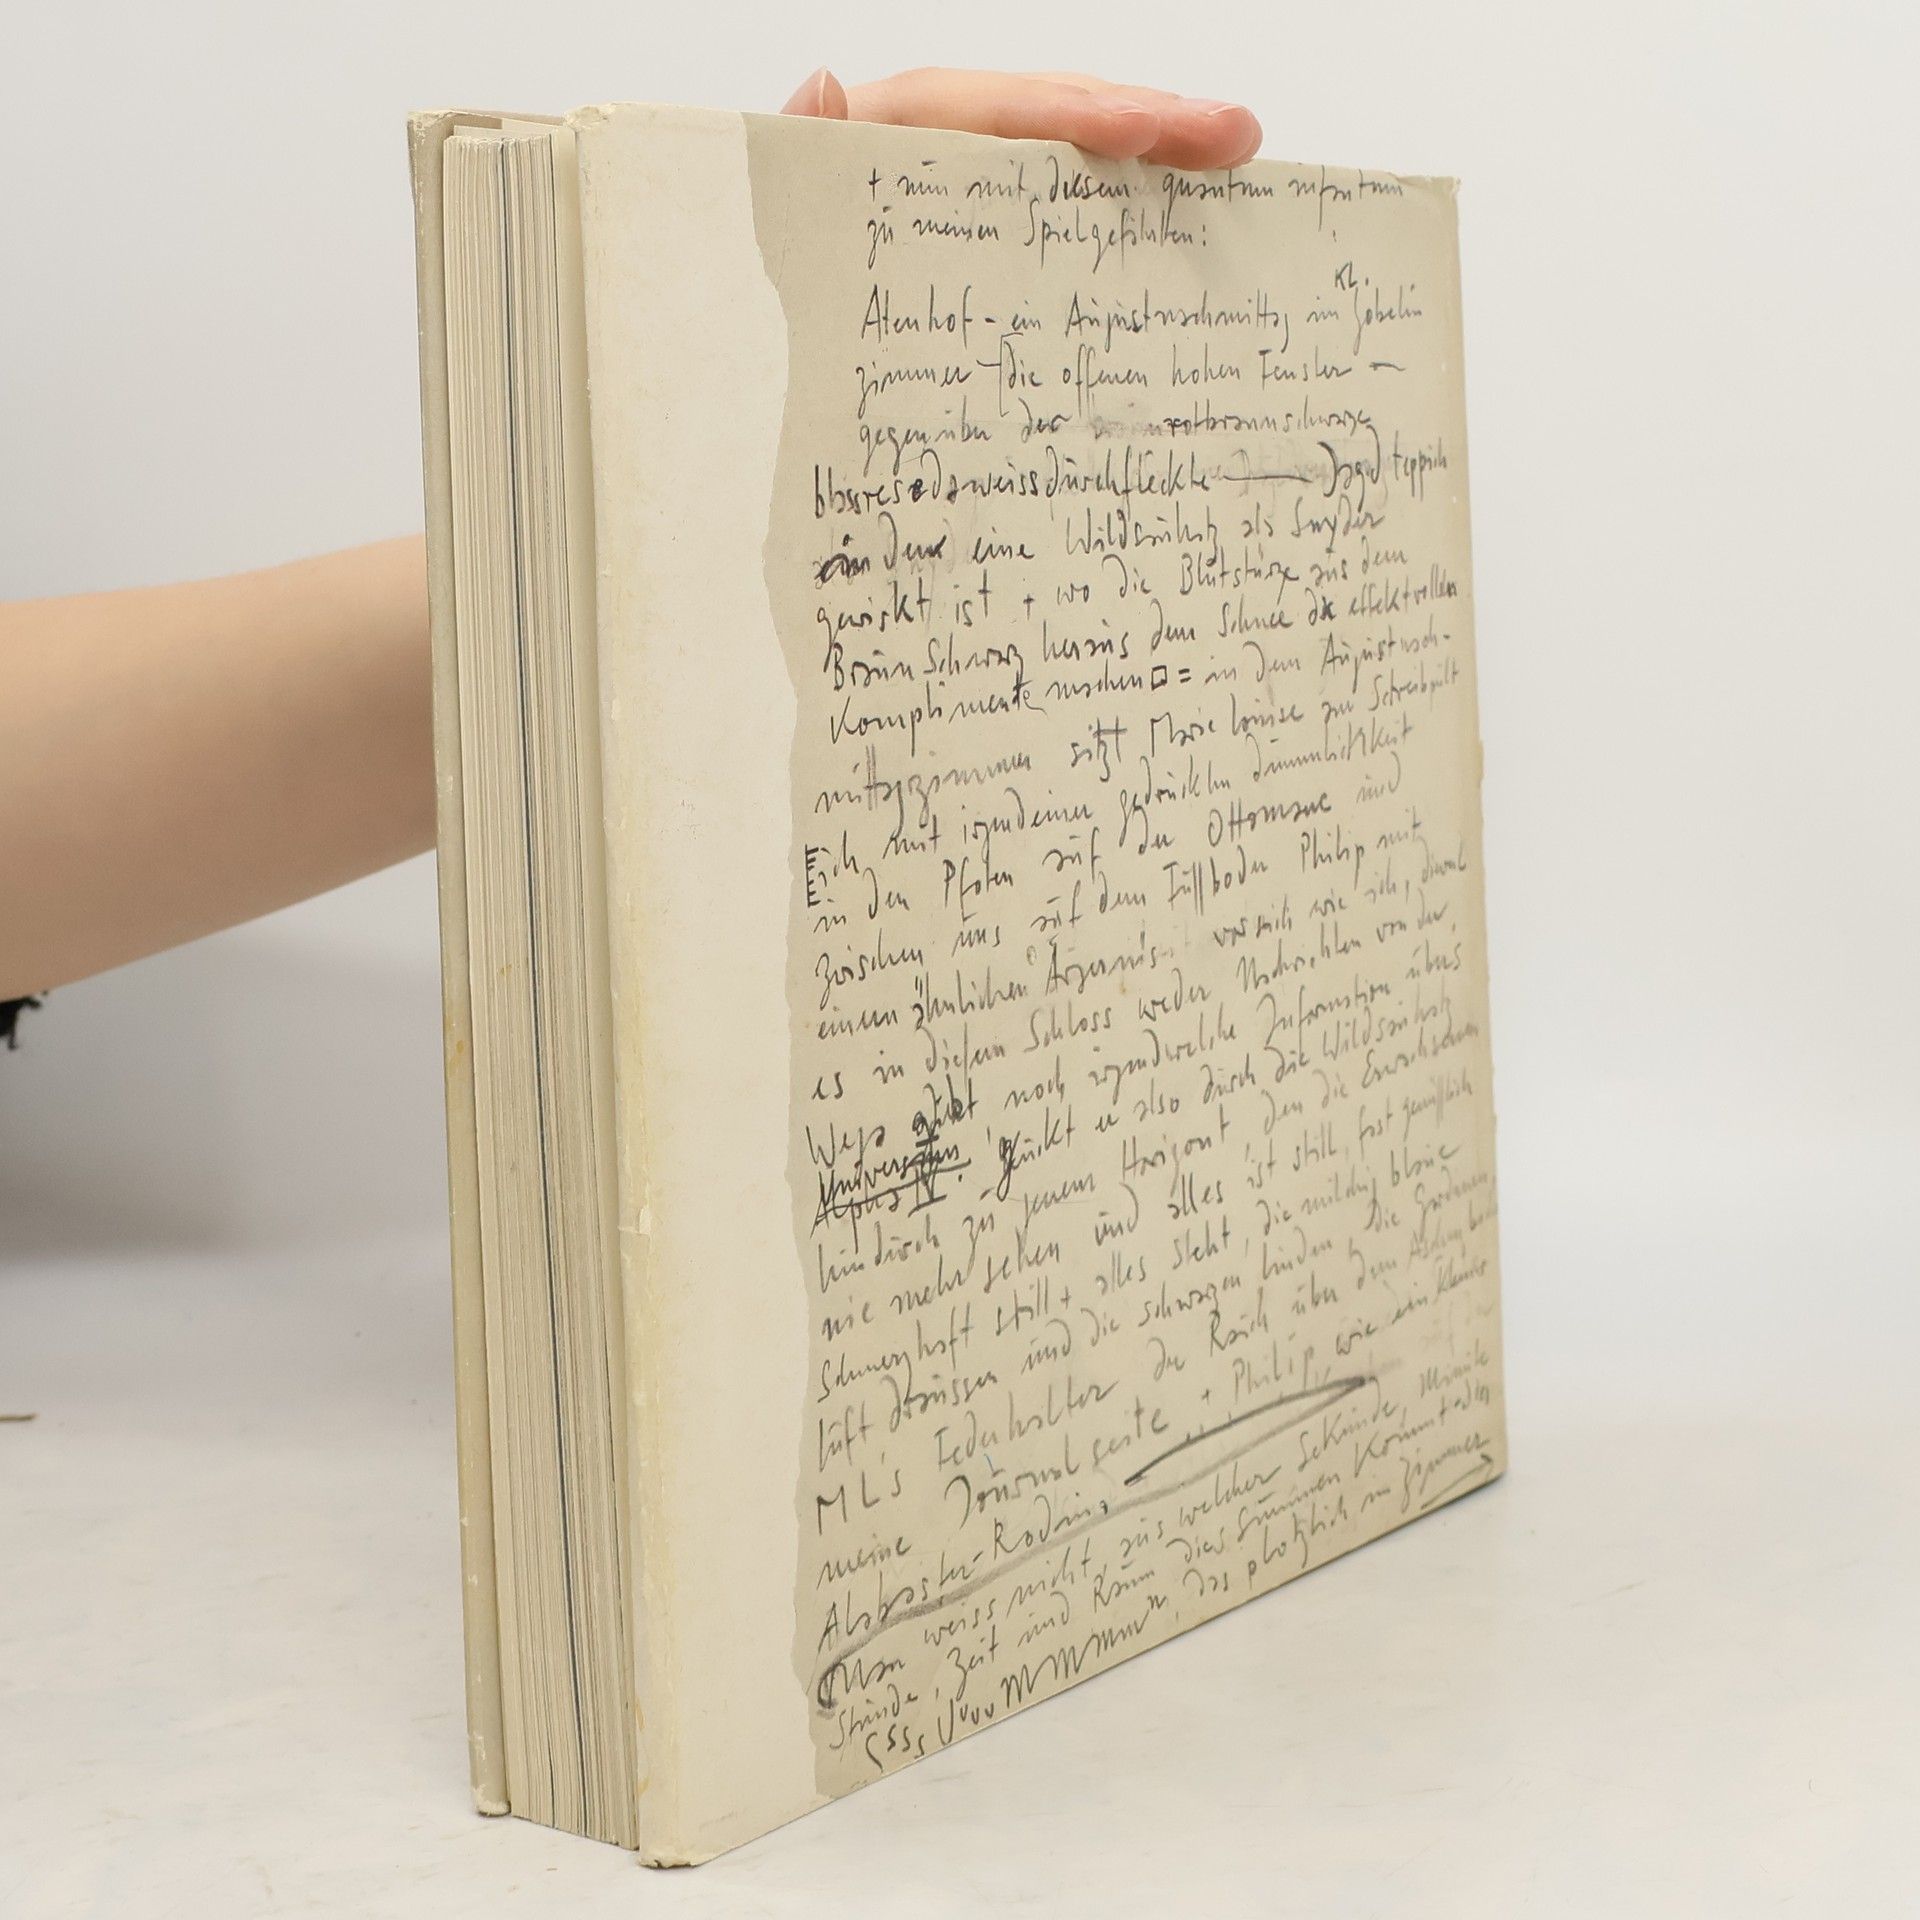 + nun mit diesem quantum infantum
zu meinen Spielgefährten:
Kl.
Atenhof - ein Augustnachmittag im Gobelin
zimmer - die offenen hohen Fenster —
gegenüber der rotbraunschwarze
blassrosedaweissdurchfleckte — Jagdteppich
in dem eine Wildsauhatz als Snyder
gewirkt ist + wo die Blutstürze aus dem
Braun Schwarz heraus dem Schnee die effektvollen
Komplimente machen = in dem Augustnach-
mittagzimmer sitzt Marie Louise am Schreibpult
ich mit irgendeiner gedruckten Dümmlichkeit
in den Pfoten auf der Ottomane und
zwischen uns auf dem Fußboden Philip mit
einem ähnlichen Ärgernis vor sich wie ich, dieweil
es in diesem Schloss weder Nachrichten von der
Wega gibt noch irgendwelche Information übers
Universum. guckt er also durch die Wildsauhatz
hindurch zu jenem Horizont, den die Erwachsenen
nie mehr sehen und alles ist still, fast
schmerzhaft still + alles steht, die milchig blaue
Luft draussen und die schwarzen Linden, die Gardinen
ML's Federhalter der Rauch über dem
meine Journalseite + Philip wie ein kleiner
Alabaster-Rodin,
Man weiss nicht, aus welcher Sekunde, Minute
Stunde, Zeit und Raum dies Summen kommt - dies
Ssss Uuuu MMMmm, das plötzlich im Zimmer